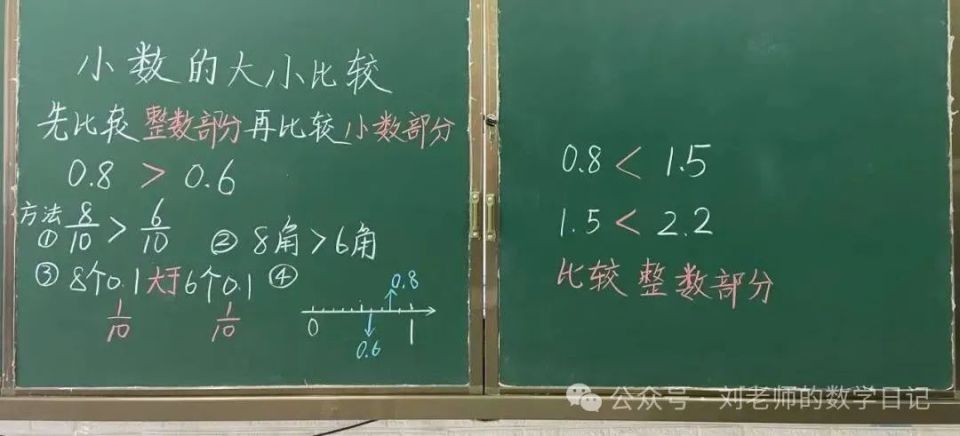 小数的大小比较
先比较整数部分再比较小数部分
0.8 > 0.6
方法
① 8/10 > 6/10 ② 8角>6角
③ 8个0.1大于6个0.1 ④
1/10 1/10
0.8
0 1
0.6
0.8 < 1.5
1.5 < 2.2
比较整数部分
公众号·刘老师的数学日记